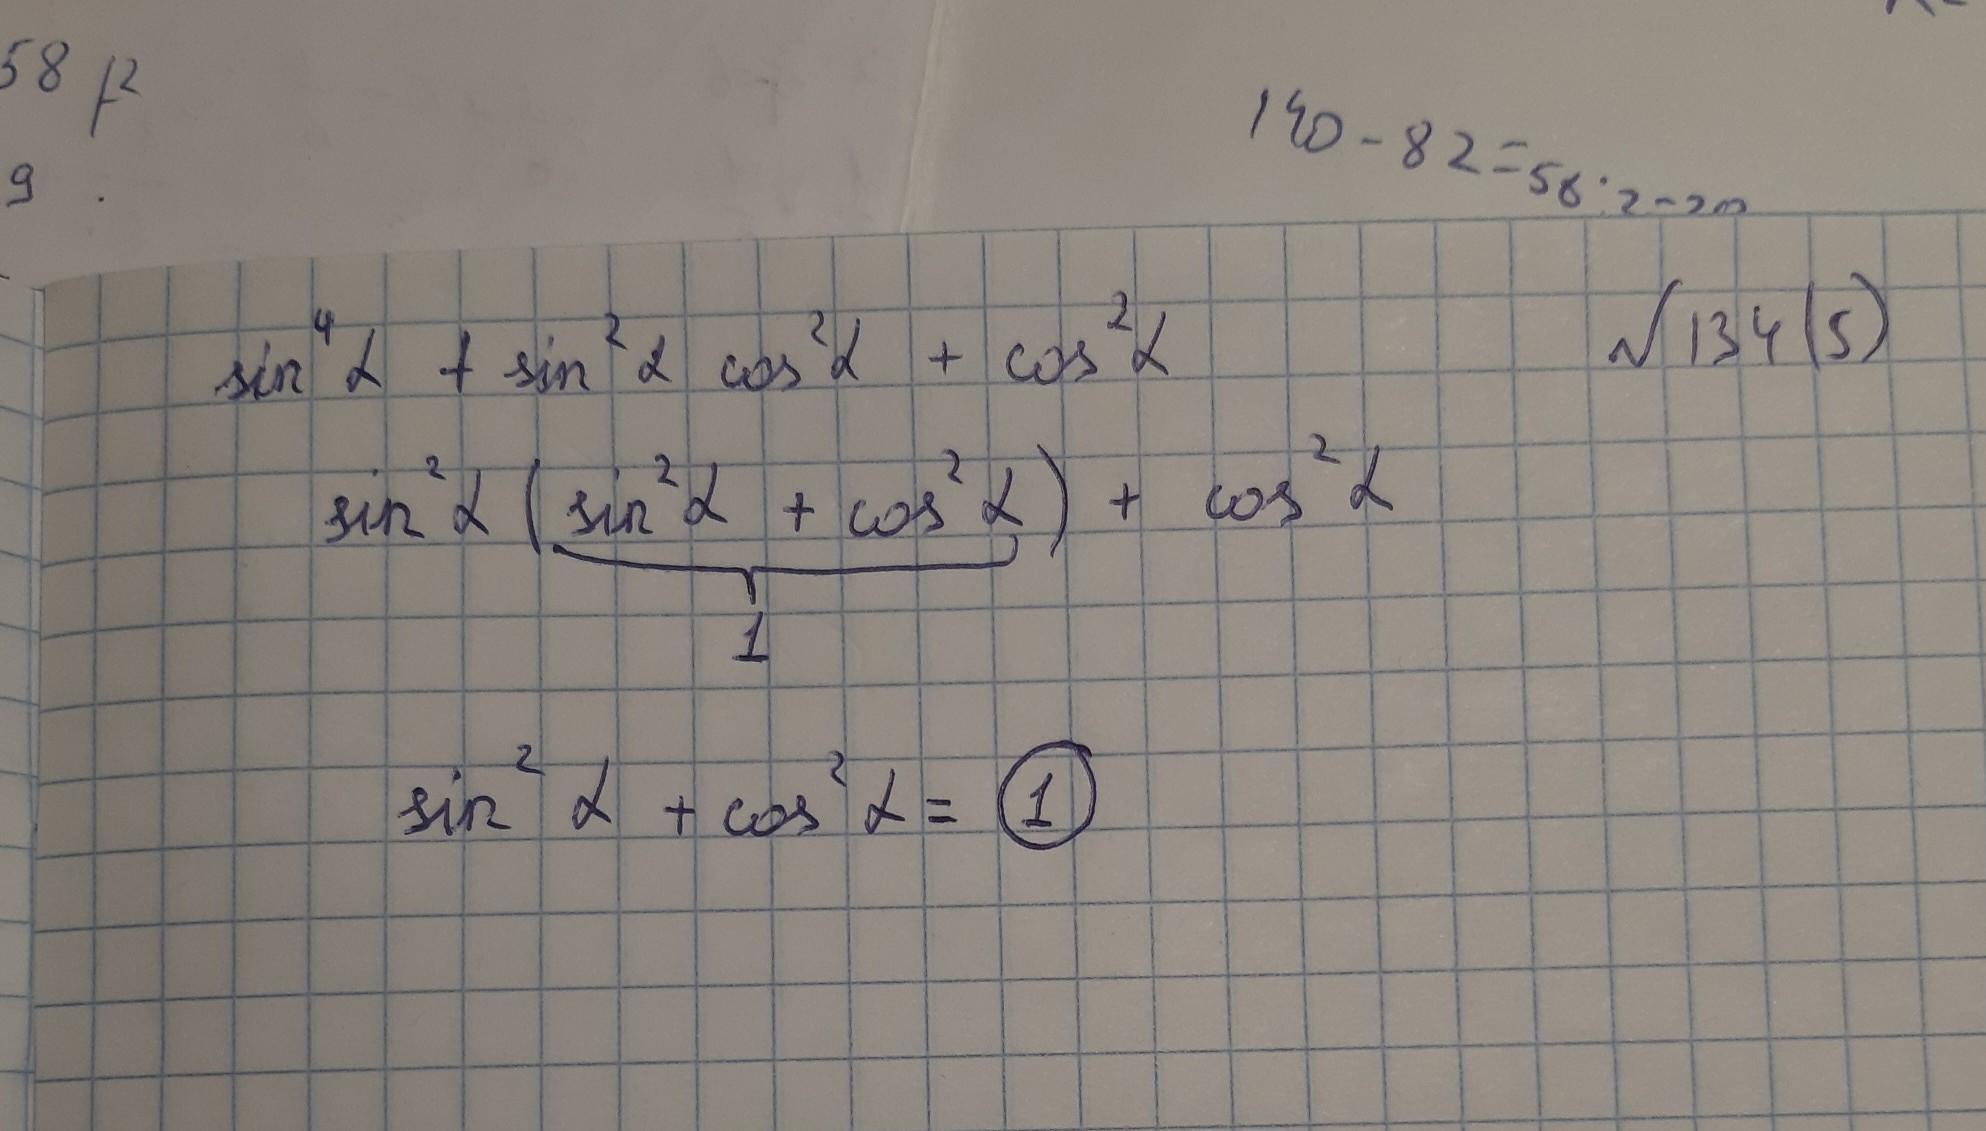 58 p²
9 .
140 - 82 = 58 : 2 -
№ 134 (5)
sin⁴α + sin²α cos²α + cos²α
sin²α (sin²α + cos²α) + cos²α
1
sin²α + cos²α = 1